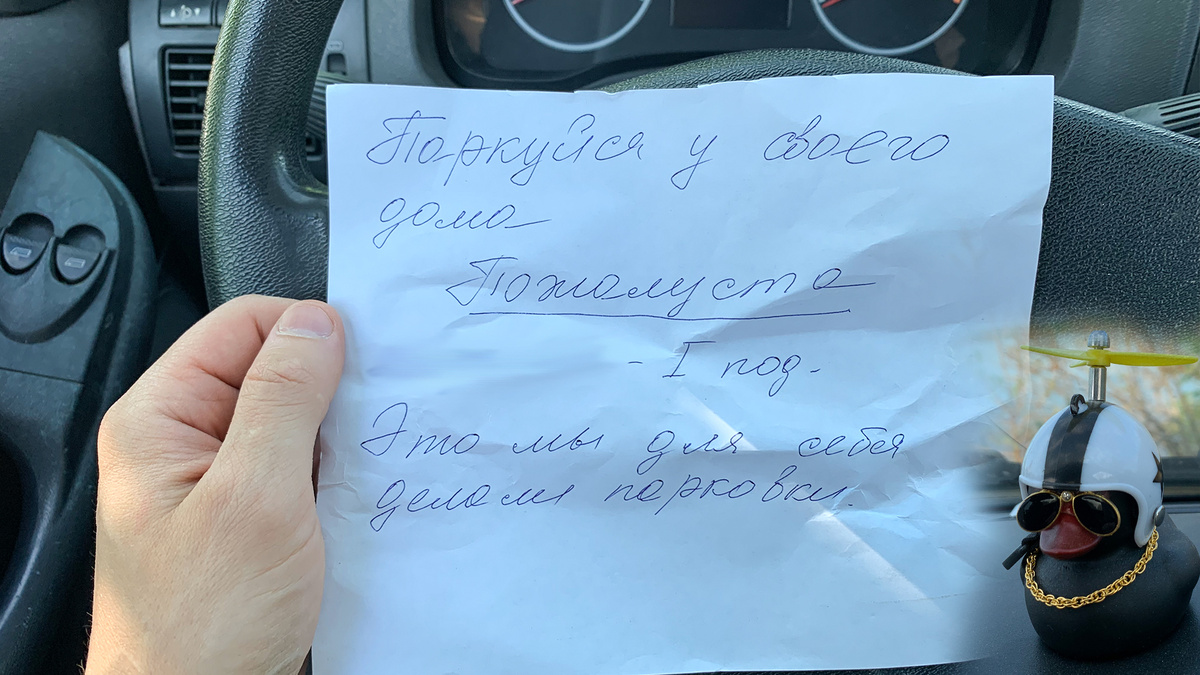 Паркуйся у своего
дома
Пожалуста
- I под.
Это мы для себя
делали парковки.